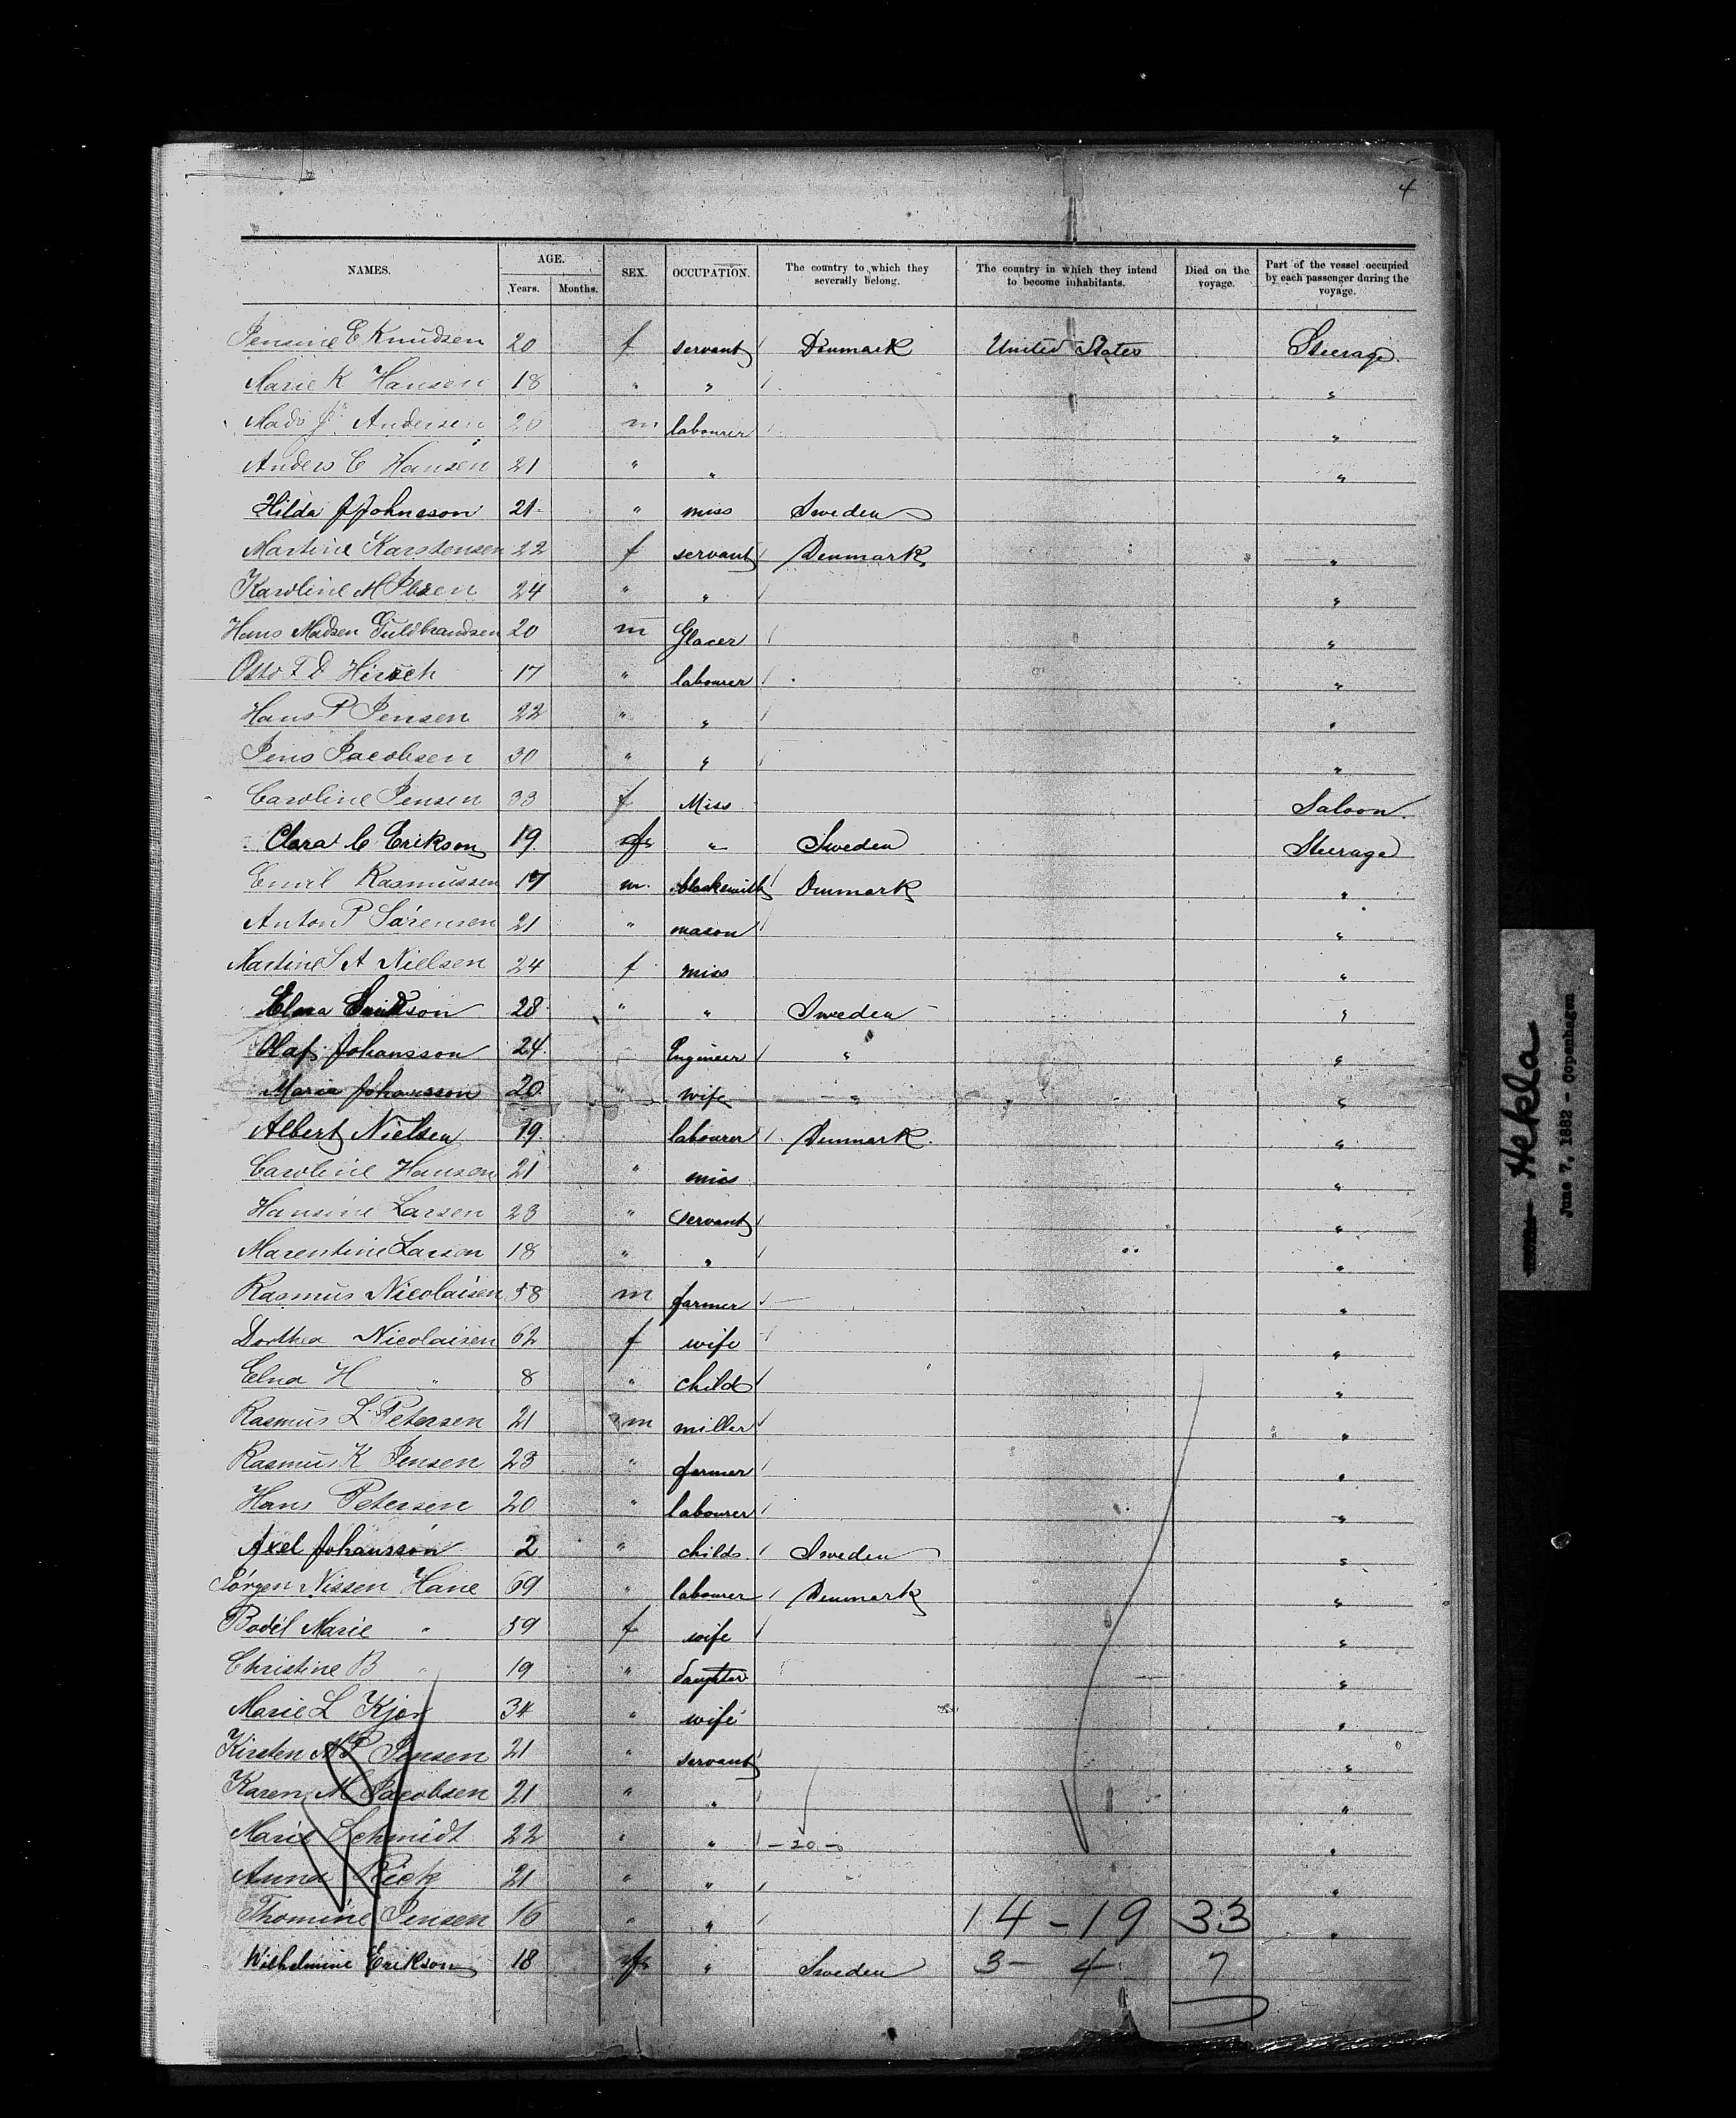 4
NAMES. AGE. SEX. OCCUPATION. The country to which they severally belong. The country in which they intend to become inhabitants. Died on the voyage. Part of the vessel occupied by each passenger during the voyage.
Years. Months.
Jensine E Knudsen 20 f servant Denmark United States Steerage.
Marie K Hansen 18 " " "
Mads Jr Andersen 20 m labourer "
Anders C Hansen 21 " " "
Hilda J Johnsson 21 " miss Sweden
Martine Karstensen 22 f servant Denmark "
Karoline M Ibsen 24 " " "
Hans Madsen Guldbrandsen 20 m Glacer "
Otto F D Hirsch 17 " labourer "
Hans P Jensen 22 " " "
Jens Jacobsen 30 " " "
Caroline Jensen 33 f Miss Saloon.
Clara C Erikson 19 f " Sweden Steerage
Emil Rasmussen 17 m. blacksmith Denmark "
Anton P Sørensen 21 " mason "
Martine S A Nielsen 24 f miss "
Erikson 28 " " Sweden "
Olaf Johansson 24 Engineer " "
Maria Johansson 20 " wife " "
Albert Nielsen 19 labourer Denmark "
Caroline Hansen 21 " miss "
Hansine Larsen 23 " servant "
Marentine Larsen 18 " " "
Rasmus Nicolaisen 58 m farmer "
Dorthea Nicolaisen 62 f wife "
Elna H " 8 " child "
Rasmus L Petersen 21 m miller "
Rasmus K Jensen 23 " farmer "
Hans Petersen 20 " labourer "
Axel Johansson 2 " child Sweden "
Jørgen Nissen Hane 69 " labourer Denmark "
Bodel Marie " 59 f wife "
Christine B " 19 " daughter "
Marie L Kjær 34 " wife "
Kirsten Jensen 21 " servant "
Karen M Jacobsen 21 " " "
Marie Schmidt 22 " " - 20 - "
Anna Rick 21 " " "
Thomine Jensen 16 " " 14 - 19 33 "
Wilhelmine Erikson 18 f " Sweden 3 - 4 7
Hekla
June 7, 1882 - Copenhagen